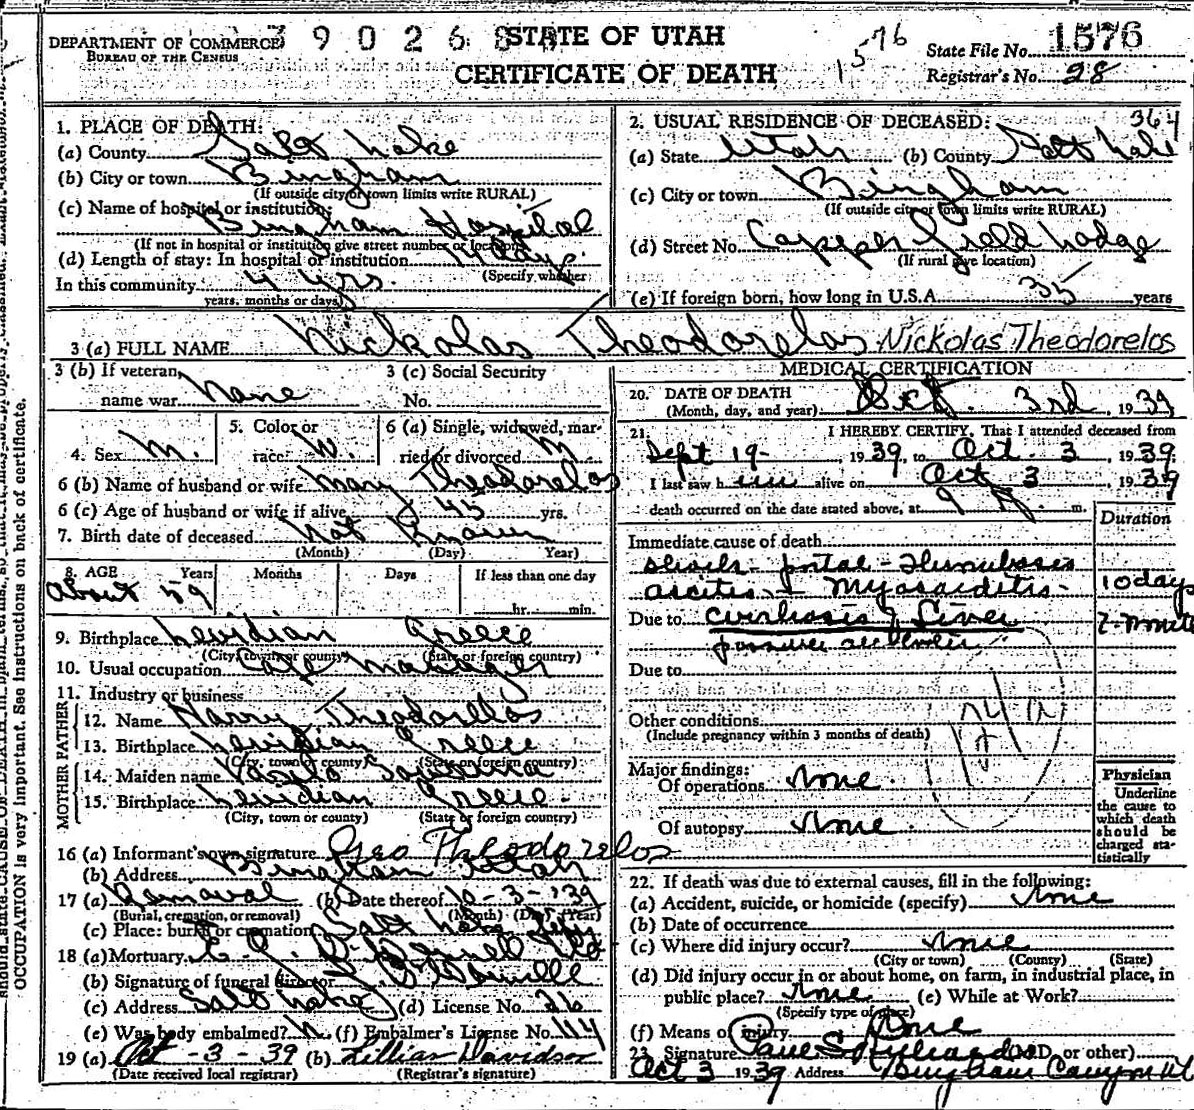 DEPARTMENT OF COMMERCE
BUREAU OF THE CENSUS
3 9 0 2 6 8
STATE OF UTAH
CERTIFICATE OF DEATH
1576
State File No. 1576
Registrar's No. 28
1. PLACE OF DEATH:
(a) County Salt Lake
(b) City or town Bingham
(If outside city or town limits write RURAL)
(c) Name of hospital or institution:
Bingham Hospital
(If not in hospital or institution give street number or location)
(d) Length of stay: In hospital or institution 14 days.
(Specify whether
In this community 4 yrs.
years, months or days)
2. USUAL RESIDENCE OF DECEASED: 364
(a) State Utah (b) County Salt Lake
(c) City or town Bingham
(If outside city or town limits write RURAL)
(d) Street No. Copper Field Lodge
(If rural give location)
(e) If foreign born, how long in U.S.A. 35 years
3 (a) FULL NAME Nickolas Theodorelos Nickolas Theodorelos
3 (b) If veteran,
name war None
3 (c) Social Security
No.
4. Sex M.
5. Color or
race W.
6 (a) Single, widowed, mar-
ried or divorced M
6 (b) Name of husband or wife Mary Theodorelos
6 (c) Age of husband or wife if alive 45 yrs.
7. Birth date of deceased Not Known
(Month) (Day) Year)
8. AGE Years Months Days If less than one day
About 59 hr. min.
9. Birthplace Greece
(City, town or county) (State or foreign country)
10. Usual occupation Cafe Manager
11. Industry or business
FATHER
12. Name Harry Theodorelos
13. Birthplace Greece
(City, town or county) (State or foreign country)
MOTHER
14. Maiden name
15. Birthplace Greece
(City, town or county) (State or foreign country)
16 (a) Informant's own signature Geo Theodorelos
(b) Address Bingham Utah
17 (a) Removal (b) Date thereof 10-3-'39
(Burial, cremation, or removal) (Month) (Day) (Year)
(c) Place: burial or cremation Salt Lake City
18 (a) Mortuary
(b) Signature of funeral director
(c) Address Salt Lake (d) License No. 26
(e) Was body embalmed? (f) Embalmer's License No. 114
19 (a) Oct -3 - 39 (b) Lillian Davidson
(Date received local registrar) (Registrar's signature)
MEDICAL CERTIFICATION
20. DATE OF DEATH
(Month, day, and year) Oct. 3rd, 1939
21. I HEREBY CERTIFY, That I attended deceased from
Sept 19- 1939, to Oct. 3, 1939.
I last saw him alive on Oct 3, 1939
death occurred on the date stated above, at 9 P. m.
Duration
Immediate cause of death
portal
ascites + Myocarditis 10 days
Due to cirrhosis of Liver
Due to
Other conditions
(Include pregnancy within 3 months of death)
Major findings:
Of operations None
Of autopsy None.
Physician
Underline
the cause to
which death
should be
charged sta-
tistically
22. If death was due to external causes, fill in the following:
(a) Accident, suicide, or homicide (specify) None
(b) Date of occurrence
(c) Where did injury occur? None
(City or town) (County) (State)
(d) Did injury occur in or about home, on farm, in industrial place, in
public place? None (e) While at Work?
(Specify type of place)
(f) Means of injury None
23. Signature Paul S. Richards (M.D. or other)
Oct 3 1939 Address Bingham Canyon Ut
OCCUPATION is very important. See instructions on back of certificate.